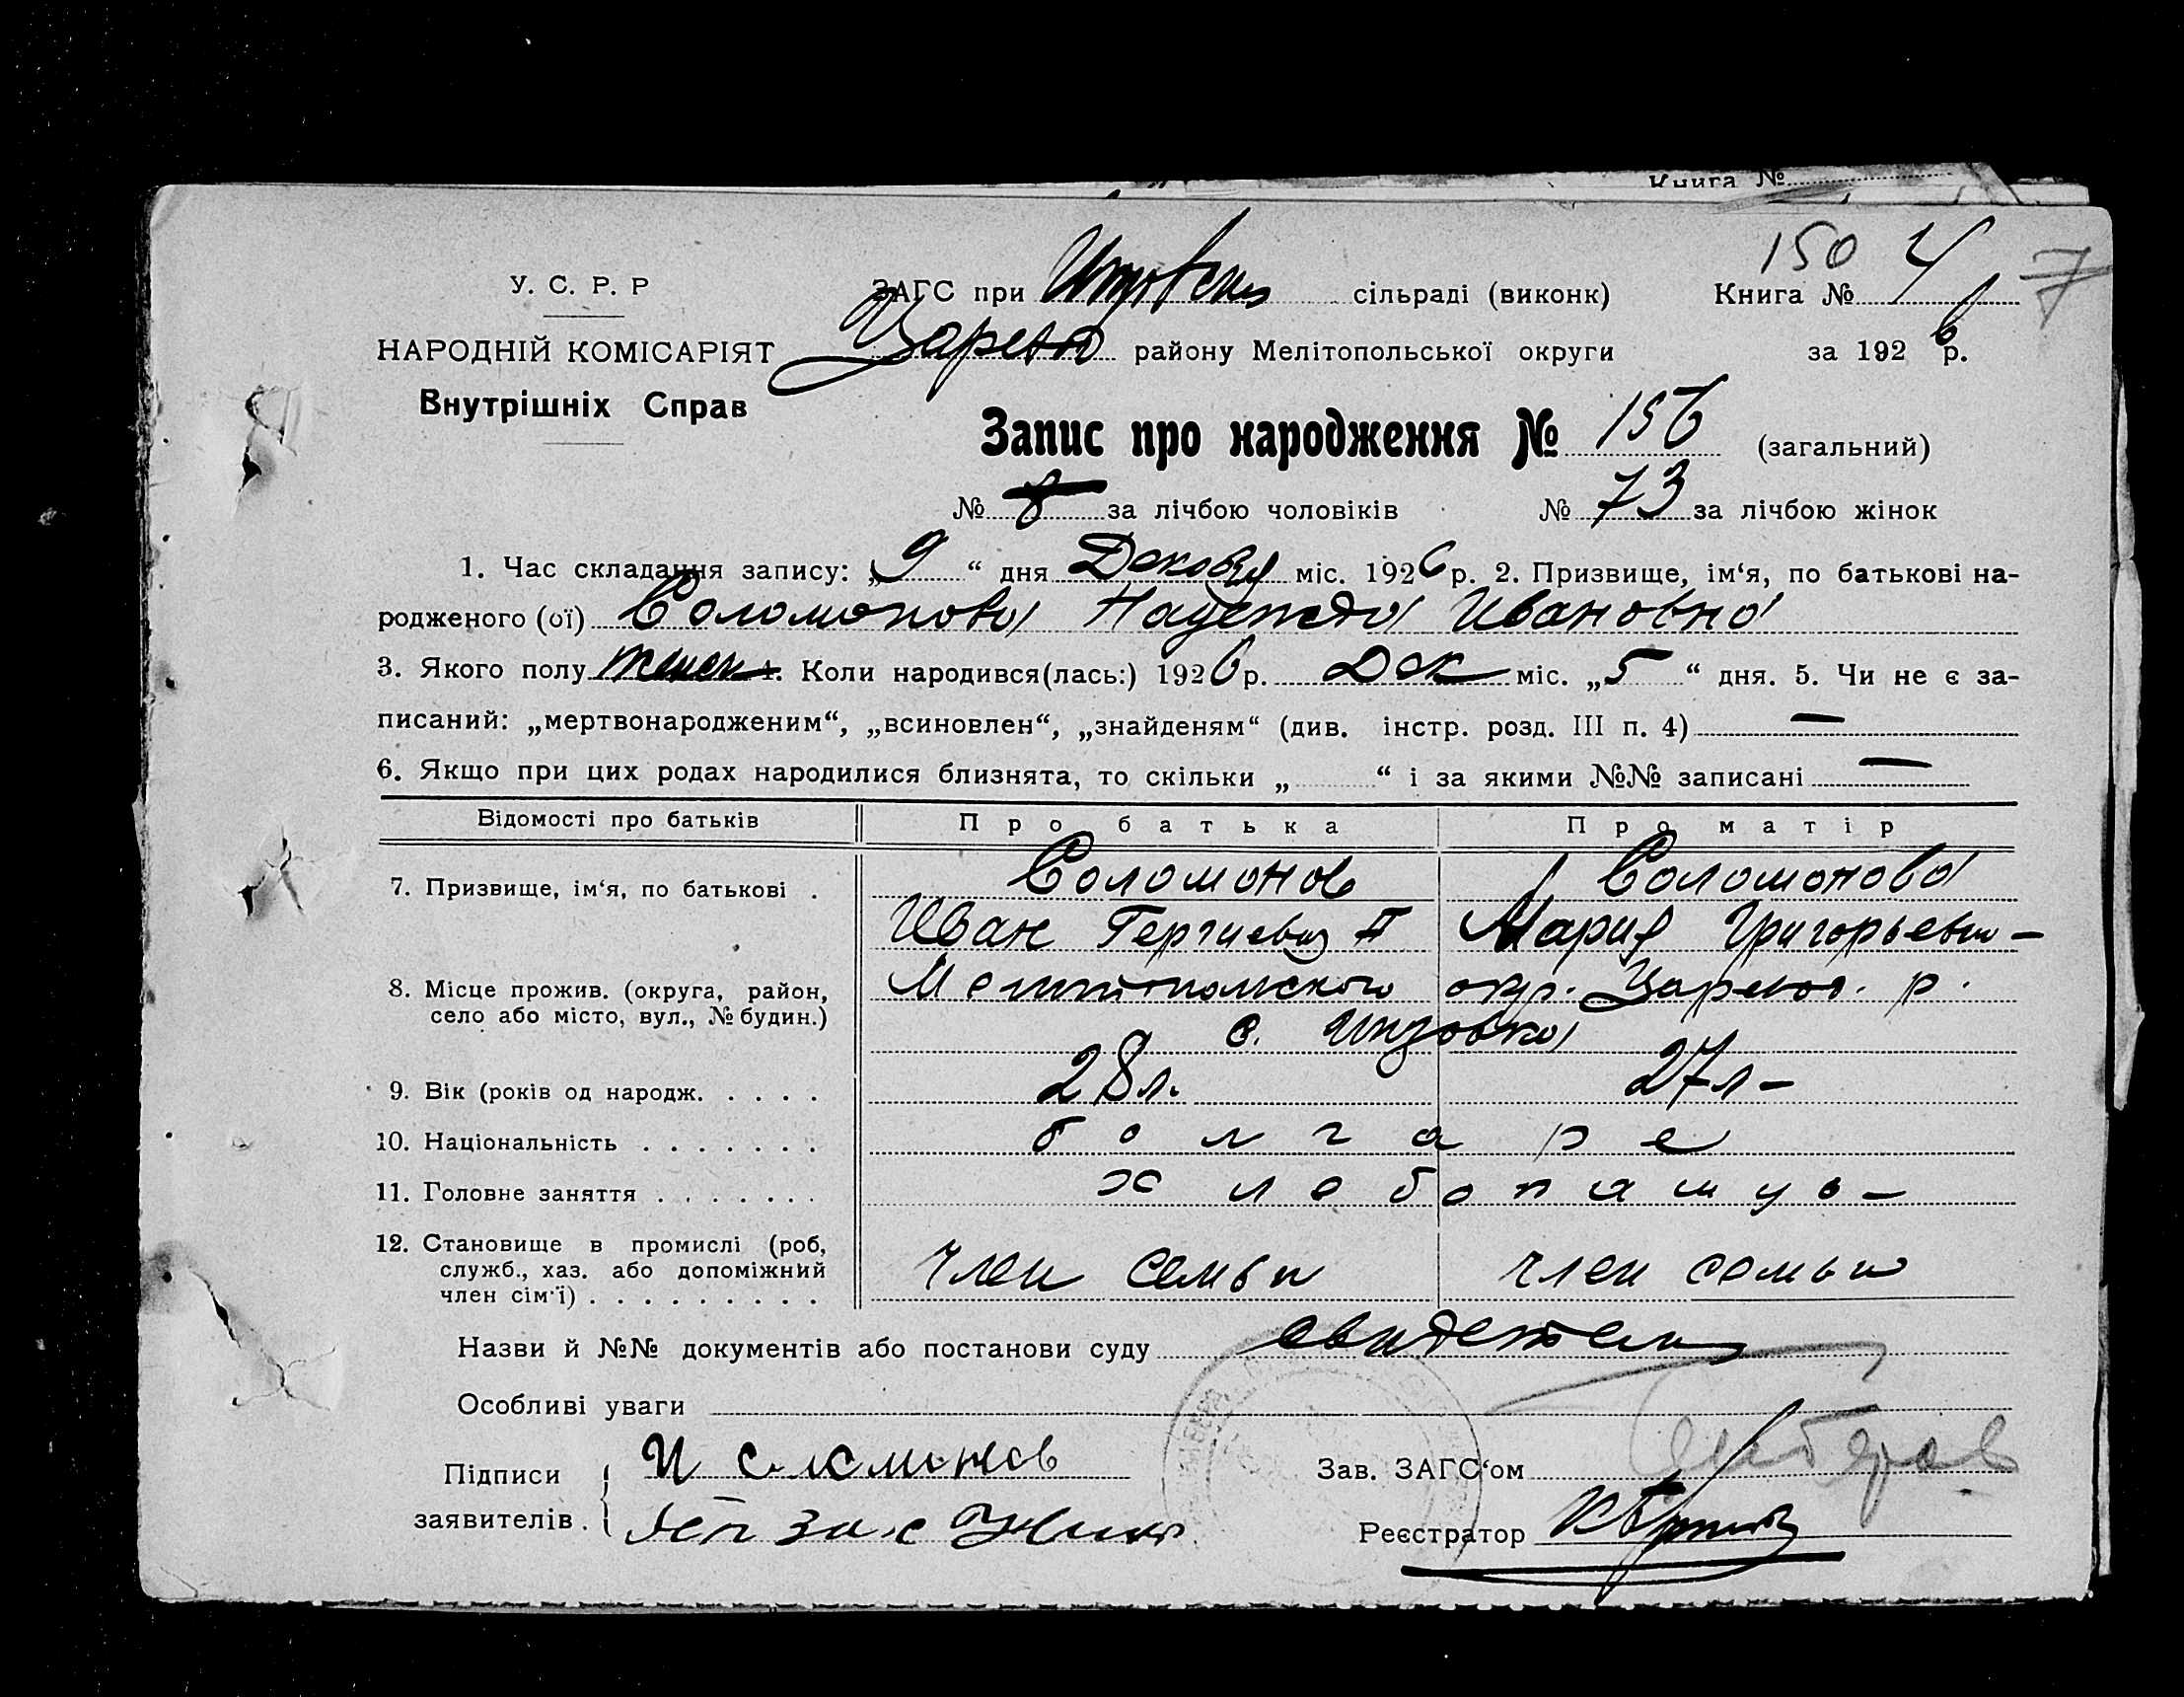 Книга №
150 4 7
У. С. Р. Р
ЗАГС при сільраді (виконк) Книга №
НАРОДНІЙ КОМІСАРІЯТ району Мелітопольської округи за 1926 р.
Внутрішніх Справ
Запис про народження № 156 (загальний)
№ за лічбою чоловіків № 73 за лічбою жінок
1. Час складання запису: „9“ дня Декабря міс. 1926 р. 2. Призвище, ім‘я, по батькові на-
родженого (ої) Соломонова Надежда Ивановна
3. Якого полу женск 4. Коли народився(лась:) 1926 р. Дек міс. „5“ дня. 5. Чи не є за-
писаний: „мертвонародженим“, „всиновлен“, „знайденям“ (див. інстр. розд. III п. 4) —
6. Якщо при цих родах народилися близнята, то скільки „ “ і за якими №№ записані —
Відомості про батьків Про батька Про матір
7. Призвище, ім‘я, по батькові . Соломонов Соломонова
Иван Гергиевич Мария Григорьевн–
8. Місце прожив. (округа, район, Мелитопольского окр. Царевод. р.
село або місто, вул., № будин.) с. Инзовка
9. Вік (років од народж. . . . . 28 л. 27 л–
10. Національність . . . . . . . болгаре
11. Головне заняття . . . . . . . хлебопашує–
12. Становище в промислі (роб, член семьи член семьи
служб., хаз. або допоміжний
член сім‘ї) . . . . . . . . .
Назви й №№ документів або постанови суду свидетели
Особливі уваги
Підписи И Соломонов Зав. ЗАГС‘ом
заявителів. Реєстратор